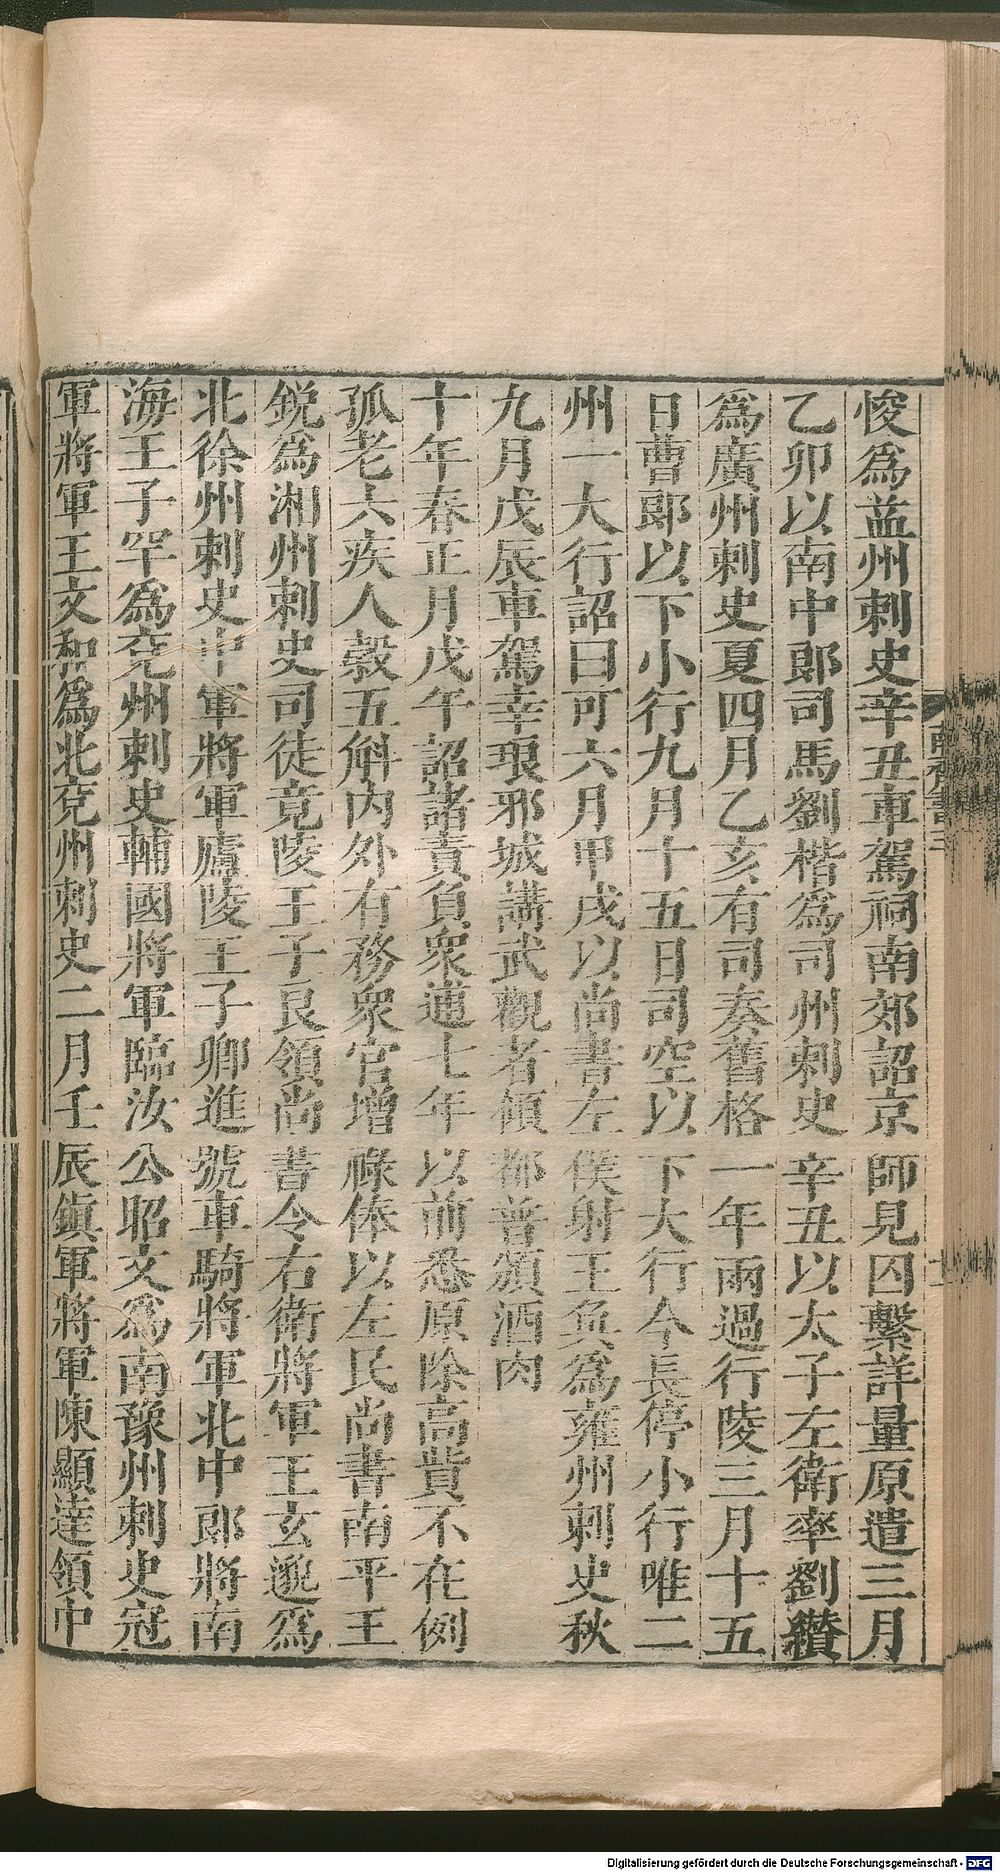 悛爲益州刺史辛丑車駕祠南郊詔京師見囚繫詳量原遣三月
乙卯以南中郞司馬劉楷爲司州刺史辛丑以太子左衛率劉纘
爲廣州刺史夏四月乙亥有司奏舊格一年兩過行陵三月十五
日曹郞以下小行九月十五日司空以下大行今長停小行唯二
州一大行詔曰可六月甲戌以尚書左僕射王奐爲雍州刺史秋
九月戊辰車駕幸琅邪城講武觀者傾都普頒酒肉
十年春正月戊午詔諸責負衆逋七年以前悉原除高貲不在例
孤老六疾人穀五斛內外有務衆官增祿俸以左民尚書南平王
銳爲湘州刺史司徒竟陵王子良領尚書令右衛將軍王玄邈爲
北徐州刺史中軍將軍廬陵王子卿進號車騎將軍北中郞將南
海王子罕爲兗州刺史輔國將軍臨汝公昭文爲南豫州刺史冠
軍將軍王文和爲北兗州刺史二月壬辰鎭軍將軍陳顯達領中
南齊書三
Digitalisierung gefördert durch die Deutsche Forschungsgemeinschaft - DFG